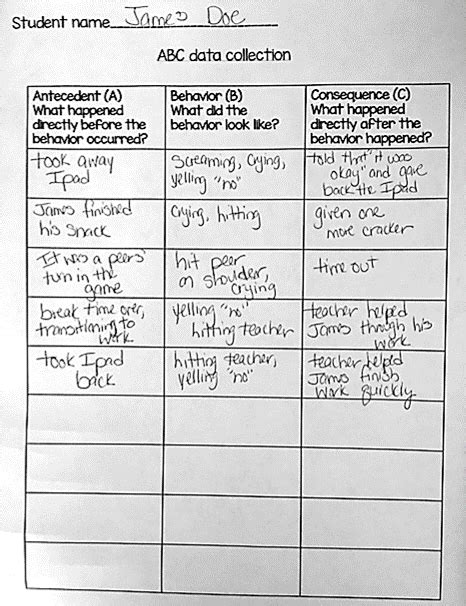 Student name James Doe
ABC data collection
Antecedent (A)
What happened
directly before the
behavior occurred?
Behavior (B)
What did the
behavior look like?
Consequence (C)
What happened
directly after the
behavior happened?
took away
Ipad
Screaming, Crying,
yelling "no"
told that "it was
okay" and gave
back the Ipad
James finished
his snack
Crying, hitting
given one
more cracker
It was a peers'
turn in the
game
hit peer
on shoulder,
crying
time out
break time over,
transitioning to
work
yelling "no"
hitting teacher
teacher helped
James through his
work
took Ipad
back
hitting teacher,
yelling "no"
teacher helped
James finish
work quickly